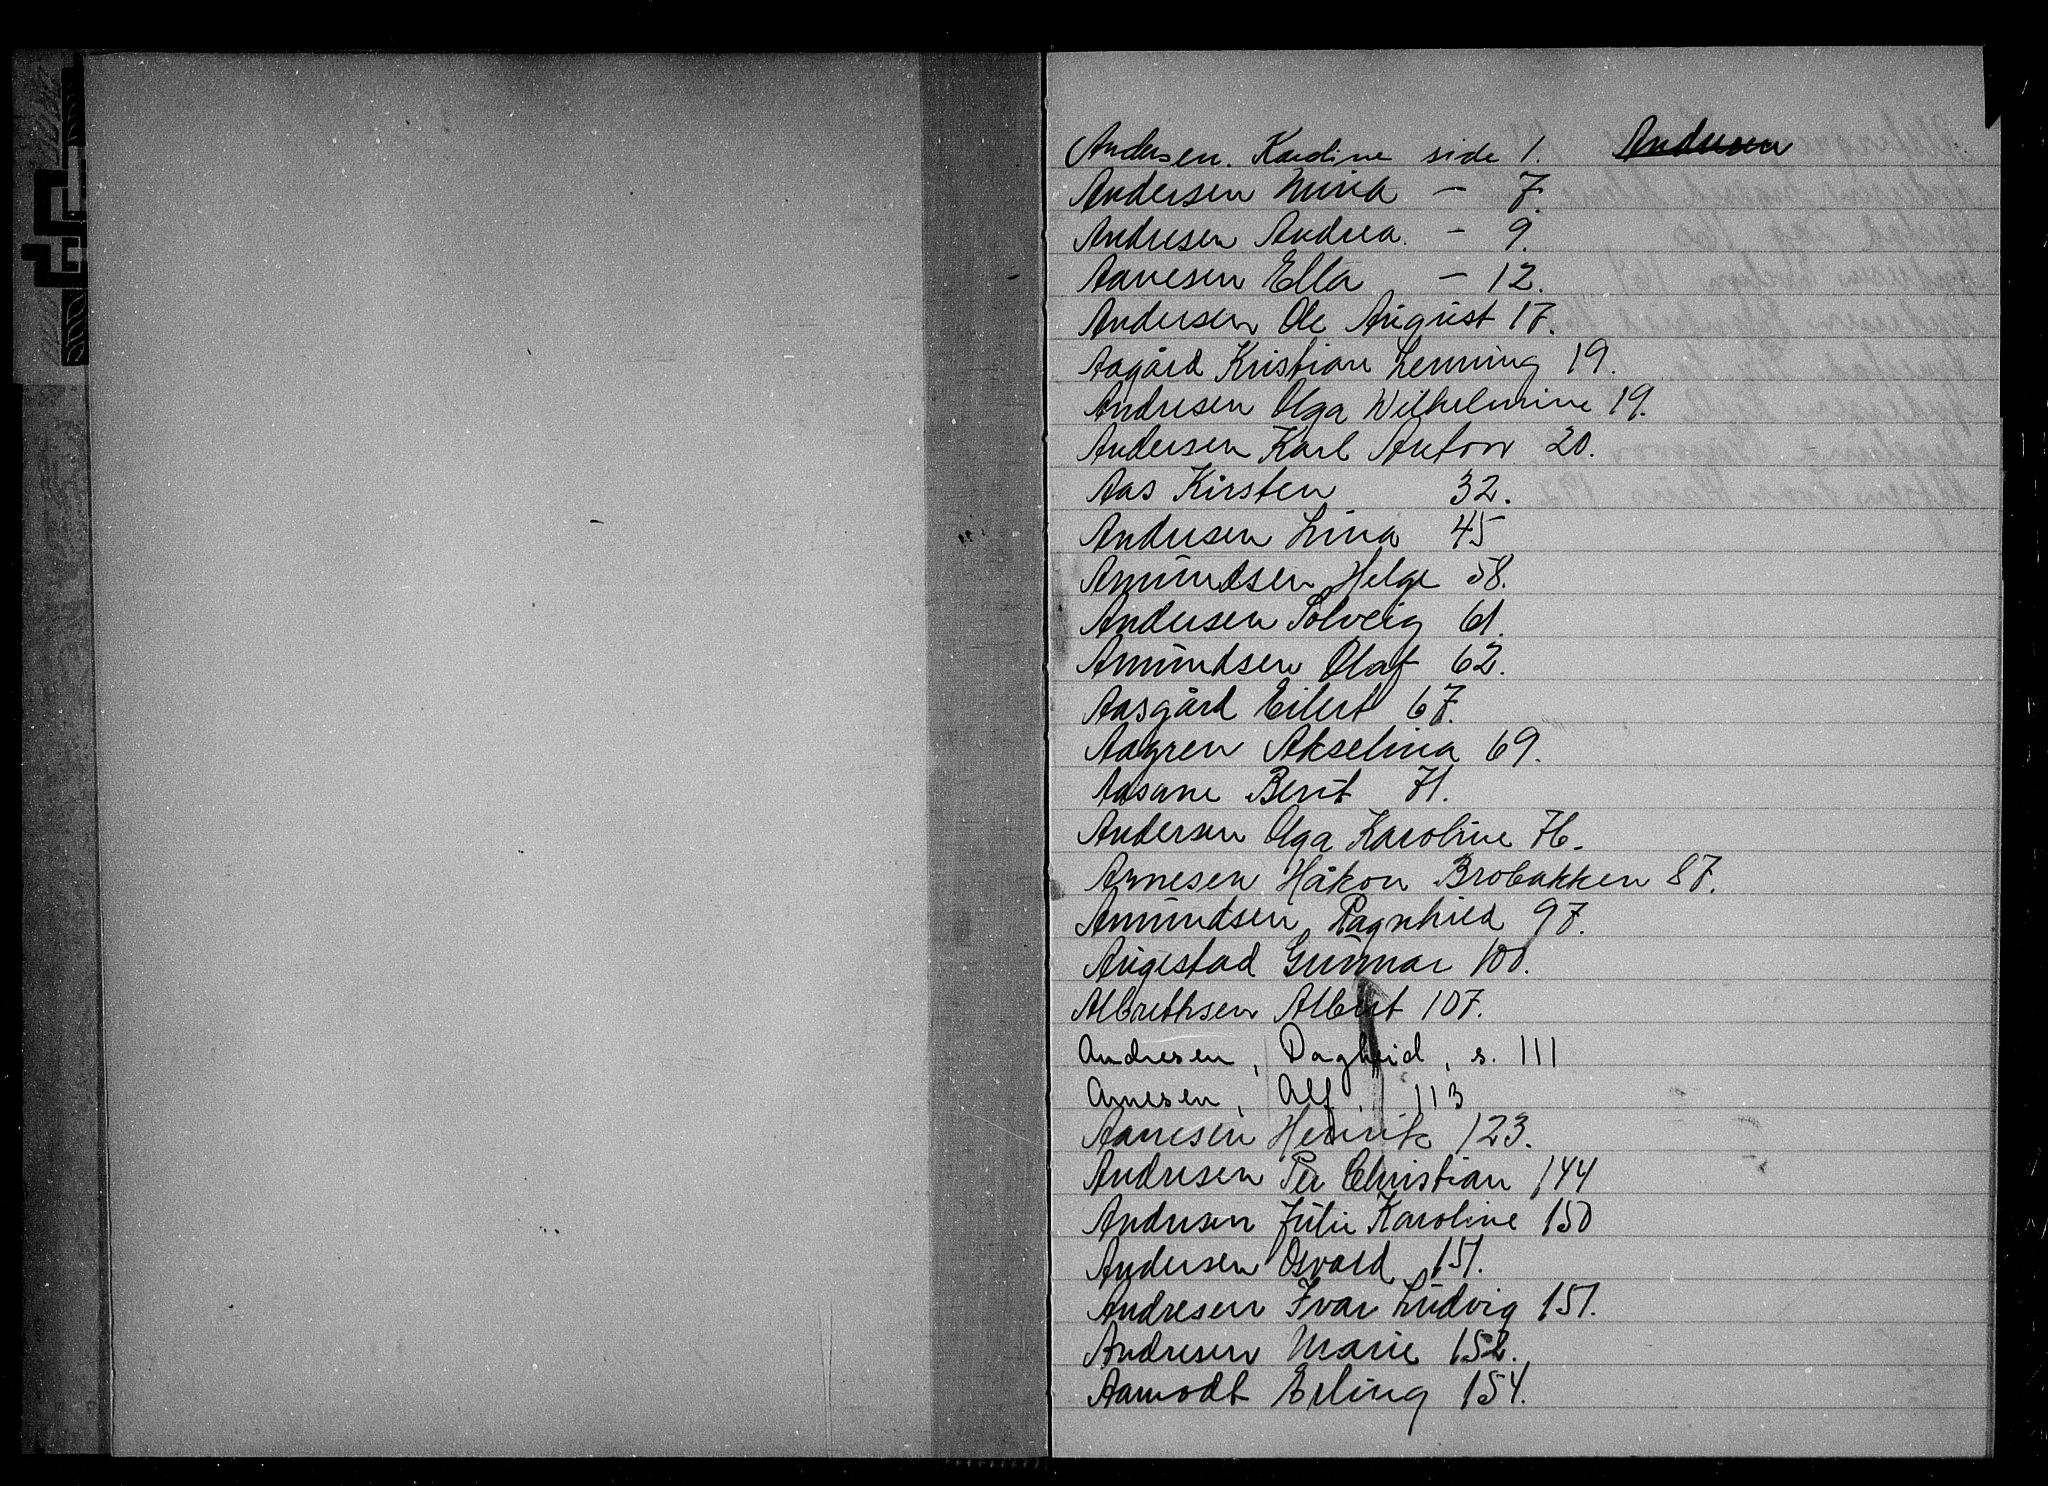 Andersen. Karoline side 1. Andresen
Andersen Mina - 7.
Andresen Andrea. - 9.
Aanesen Ella - 12.
Andersen Ole August 17.
Aagård Kristian Lenning 19.
Andresen Olga Wilhelmine 19.
Andersen Karl Anton 20.
Aas Kirsten 32.
Andersen Lina 45
Amundsen Helge 58.
Andersen Solveig 61.
Amundsen Olaf 62.
Aasgård Eilert 67.
Aagren Akselina 69.
Aasane Berit 71.
Andersen Olga Karoline 76.
Arnesen Håkon Brobakken 87.
Amundsen Ragnhild 97.
Augestad Gunnar 100.
Albrethsen Albert 107.
Andresen, Dagheid, s. 111
Arnesen, Alf, 113
Aanesen Henrik 123.
Andresen Per Christian 144
Andersen Julie Karoline 150
Andersen Osvald 151.
Andresen Ivar Ludvig 151.
Andresen Marie 152.
Aamodt Erling 154.